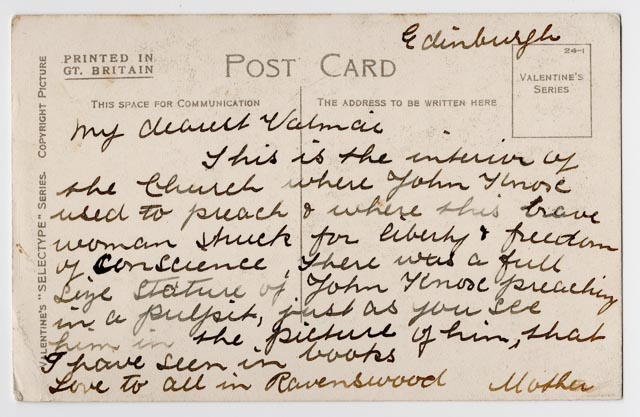 Edinburgh
PRINTED IN
GT. BRITAIN
POST CARD
24-1
VALENTINE'S
SERIES
THIS SPACE FOR COMMUNICATION
THE ADDRESS TO BE WRITTEN HERE
VALENTINE'S "SELECTYPE" SERIES. COPYRIGHT PICTURE
My dearest Valmai
This is the interior of
the Church where John Knox
used to preach & where this brave
woman struck for liberty & freedom
of conscience, There was a full
size stature of John Knox preaching
in a pulpit, just as you see
him in the picture of him, that
I have seen in books
Love to all in Ravenswood Mother